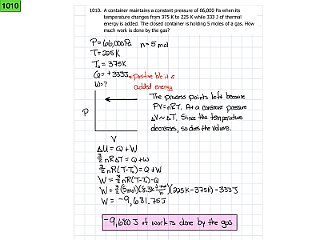 1010
1010. A container maintains a constant pressure of 66,000 Pa when its
temperature changes from 375 K to 225 K while 333 J of thermal
energy is added. The closed container is holding 5 moles of a gas. How
much work is done by the gas?
P=66,000Pa n=5 mol
T=225K
T₀=375K
Q=+333J → positive b/c it is
added energy
W=?
The process points left because
PV=nRT. At a constant pressure
ΔV~ΔT. Since the temperature
decreases, so does the volume.
P
V
ΔU=Q+W
3/2 nRΔT=Q+W
3/2 nR(T-T₀)=Q+W
W=3/2 nR(T-T₀)-Q
W=3/2(5mol)(8.31 )(225K-375K)-333J
W=-9,681.75J
-9,680J of work is done by the gas